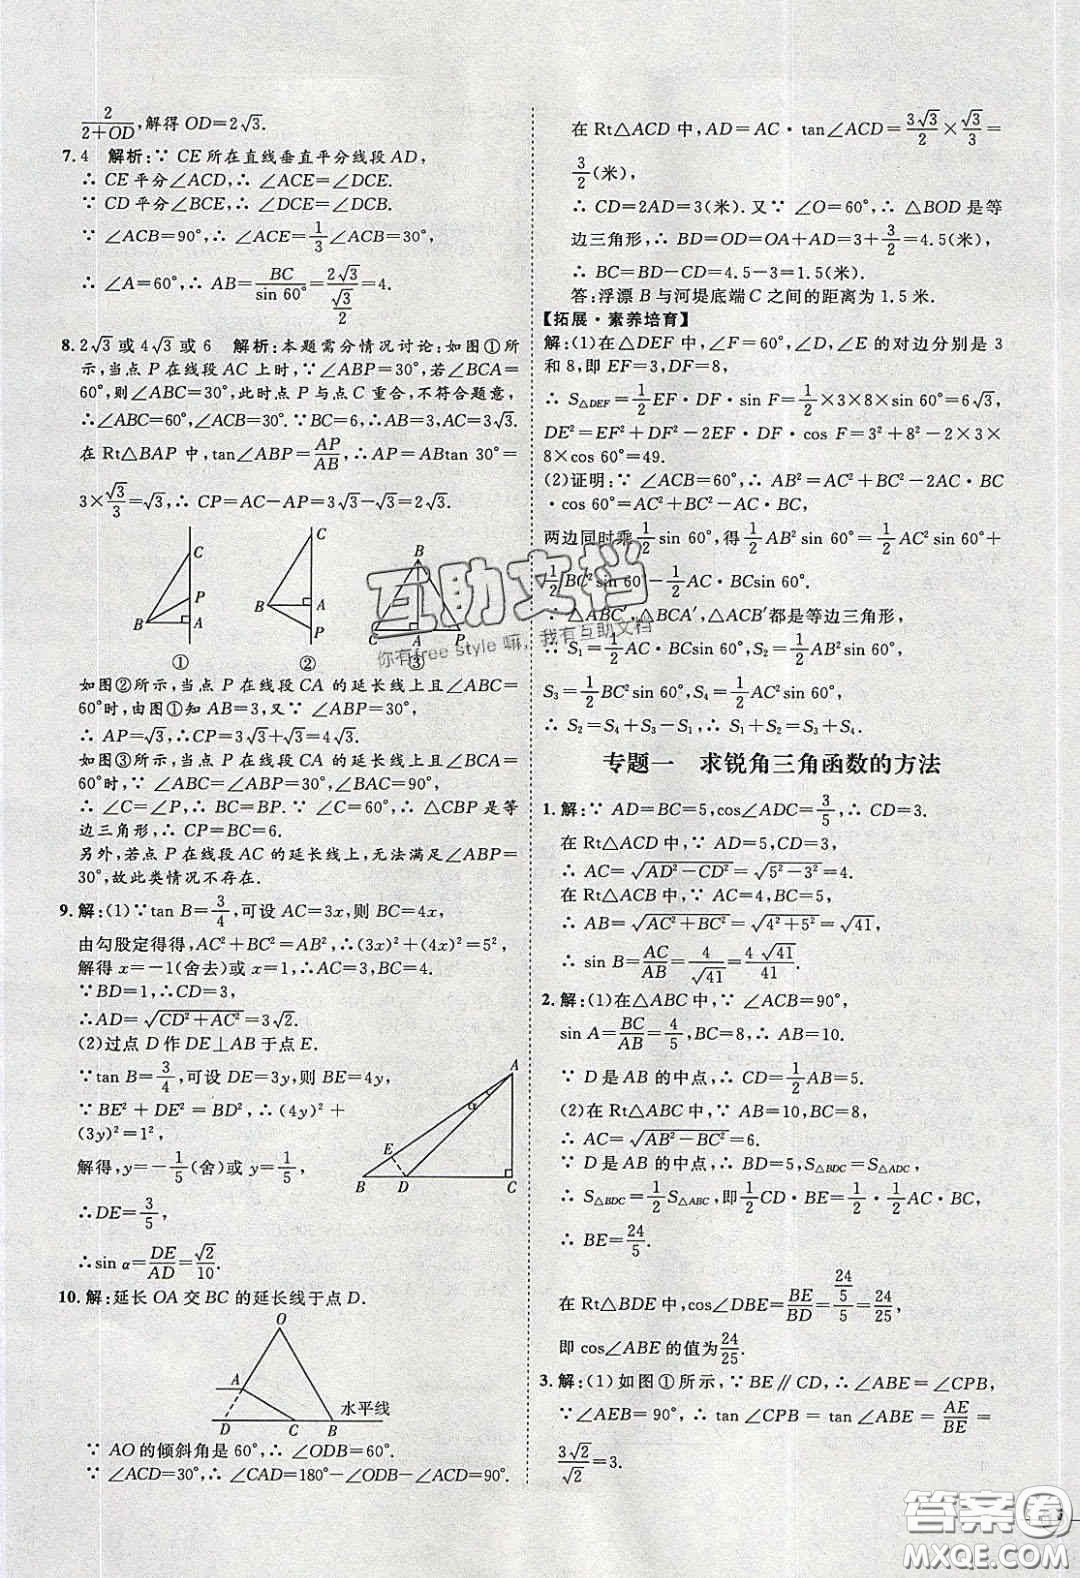 2/(2+OD),解得 OD=2√3.
7. 4　解析:∵ CE 所在直线垂直平分线段 AD,
∴ CE 平分∠ACD,∴ ∠ACE=∠DCE.
∵ CD 平分∠BCE,∴ ∠DCE=∠DCB.
∵ ∠ACB=90°,∴ ∠ACE=1/3∠ACB=30°,
∴ ∠A=60°,∴ AB=BC/sin 60°=2√3/(√3/2)=4.
8. 2√3或4√3或6　解析:本题需分情况讨论:如图①所
示,当点 P 在线段 AC 上时,∵ ∠ABP=30°,若∠BCA=
60°,则∠ABC=30°,此时点 P 与点 C 重合,不符合题意,
∴∠ABC=60°,∠BCA=30°.∵BC=6,∴AB=3,AC=3√3.
在 Rt△BAP 中,tan∠ABP=AP/AB,∴AP=ABtan 30°=
3×√3/3=√3,∴ CP=AC−AP=3√3−√3=2√3.
C
P
B
A
①
C
B
A
P
②
B
C
A
P
③
如图②所示,当点 P 在线段 CA 的延长线上且∠ABC=
60°时,由图①知 AB=3,又∵ ∠ABP=30°,
∴ AP=√3,∴ CP=3√3+√3=4√3.
如图③所示,当点 P 在线段 CA 的延长线上且∠BCA=
60°时,∠ABC=30°.∵ ∠ABP=30°,∴ ∠CBP=60°,
∴ ∠C=∠P=∠CBP=60°,∴ △CBP 是等
边三角形,∴ CP=BC=6.
另外,若点 P 在线段 AC 的延长线上,无法满足∠ABP=
30°,故此类情况不存在.
9. 解:(1)∵tan B=3/4,可设 AC=3x,则 BC=4x,
由勾股定得得,AC²+BC²=AB²,∴(3x)²+(4x)²=5²,
解得 x=−1(舍去)或 x=1,∴AC=3,BC=4.
∵BD=1,∴CD=3,
∴AD=√(CD²+AC²)=3√2.
(2)过点 D 作 DE⊥AB 于点 E.
∵tan B=3/4,可设 DE=3y,则 BE=4y,
∵BE²+DE²=BD²,∴(4y)²+
(3y)²=1²,
解得,y=−1/5(舍)或 y=1/5,
∴DE=3/5,
∴sin α=DE/AD=√2/10.
A
α
E
B
D
C
10. 解:延长 OA 交 BC 的延长线于点 D.
O
A
D
C
B
水平线
∵ AO 的倾斜角是 60°,∴ ∠ODB=60°.
∵ ∠ACD=30°,∴ ∠CAD=180°−∠ODB−∠ACD=90°.
在 Rt△ACD 中,AD=AC·tan∠ACD=3√3/2×√3/3=
3/2(米),
∴ CD=2AD=3(米).又∵ ∠O=60°,∴ △BOD 是等
边三角形,∴ BD=OD=OA+AD=3+3/2=4.5(米),
∴ BC=BD−CD=4.5−3=1.5(米).
答:浮漂 B 与河堤底端 C 之间的距离为 1.5 米.
【拓展·素养培育】
解:(1)在△DEF 中,∠F=60°,∠D,∠E 的对边分别是 3
和 8,即 EF=3,DF=8,
∴ S△DEF=1/2EF·DF·sin F=1/2×3×8×sin 60°=6√3,
DE²=EF²+DF²−2EF·DF·cos F=3²+8²−2×3×
8×cos 60°=49.
(2)证明:∵ ∠ACB=60°,∴ AB²=AC²+BC²−2AC·BC
·cos 60°=AC²+BC²−AC·BC,
两边同时乘1/2sin 60°,得1/2AB²sin 60°=1/2AC²sin 60°+
1/2BC²sin 60−1/2AC·BCsin 60°.
∵ △ABC′,△BCA′,△ACB′都是等边三角形,
∴ S₁=1/2AC·BCsin 60°,S₂=1/2AB²sin 60°,
S₃=1/2BC²sin 60°,S₄=1/2AC²sin 60°,
∴ S₂=S₄+S₃−S₁,∴ S₁+S₂=S₃+S₄.
专题一　求锐角三角函数的方法
1. 解:∵ AD=BC=5,cos∠ADC=3/5,∴ CD=3.
在 Rt△ACD 中,∵ AD=5,CD=3,
∴ AC=√(AD²−CD²)=√(5²−3²)=4.
在 Rt△ACB 中,∵ AC=4,BC=5,
∴ AB=√(AC²+BC²)=√(4²+5²)=√41,
∴ sin B=AC/AB=4/√41=4√41/41.
2. 解:(1)在△ABC 中,∵ ∠ACB=90°,
sin A=BC/AB=4/5,BC=8,∴ AB=10.
∵ D 是 AB 的中点,∴ CD=1/2AB=5.
(2)在 Rt△ABC 中,∵ AB=10,BC=8,
∴ AC=√(AB²−BC²)=6.
∵ D 是 AB 的中点,∴ BD=5,S△BDC=S△ADC,
∴ S△BDC=1/2S△ABC,即1/2CD·BE=1/2·1/2AC·BC,
∴ BE=24/5.
在 Rt△BDE 中,cos∠DBE=BE/BD=(24/5)/5=24/25,
即 cos∠ABE 的值为24/25.
3. 解:(1)如图①所示,∵ BE∥CD,∴ ∠ABE=∠CPB,
∵ ∠AEB=90°,∴ tan∠CPB=tan∠ABE=AE/BE=
3√2/√2=3.
互助文档
你有free style 嘛,我有互助文档
答案圈
MXQE.COM